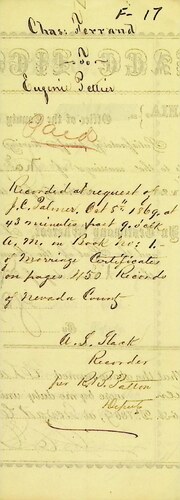 F-17
Chas: Ferrand
to
Eugenie Pellier
Paid
Recorded at request of
J.C. Palmer, Oct 5th 1869, at
43 minutes past 9. oclk
A.M. in Book No: 1.-
of Marriage Certificates
on pages 450 Records
of Nevada County
A. S. Slack
Recorder
per R. B. Patton
Deputy